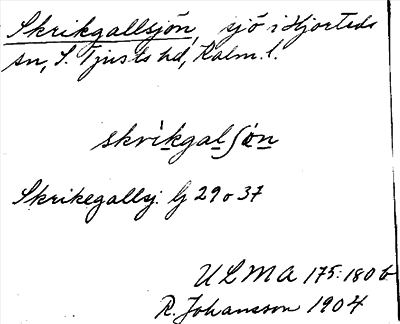 Skrikgallsjön, sjö i Hjorteds
sn, S. Tjusts hd, Kalm. l.
skrikgalʃön
Skrikegallsj. Gj 29 o 37
ULMA 175:180 b
R. Johansson 1904